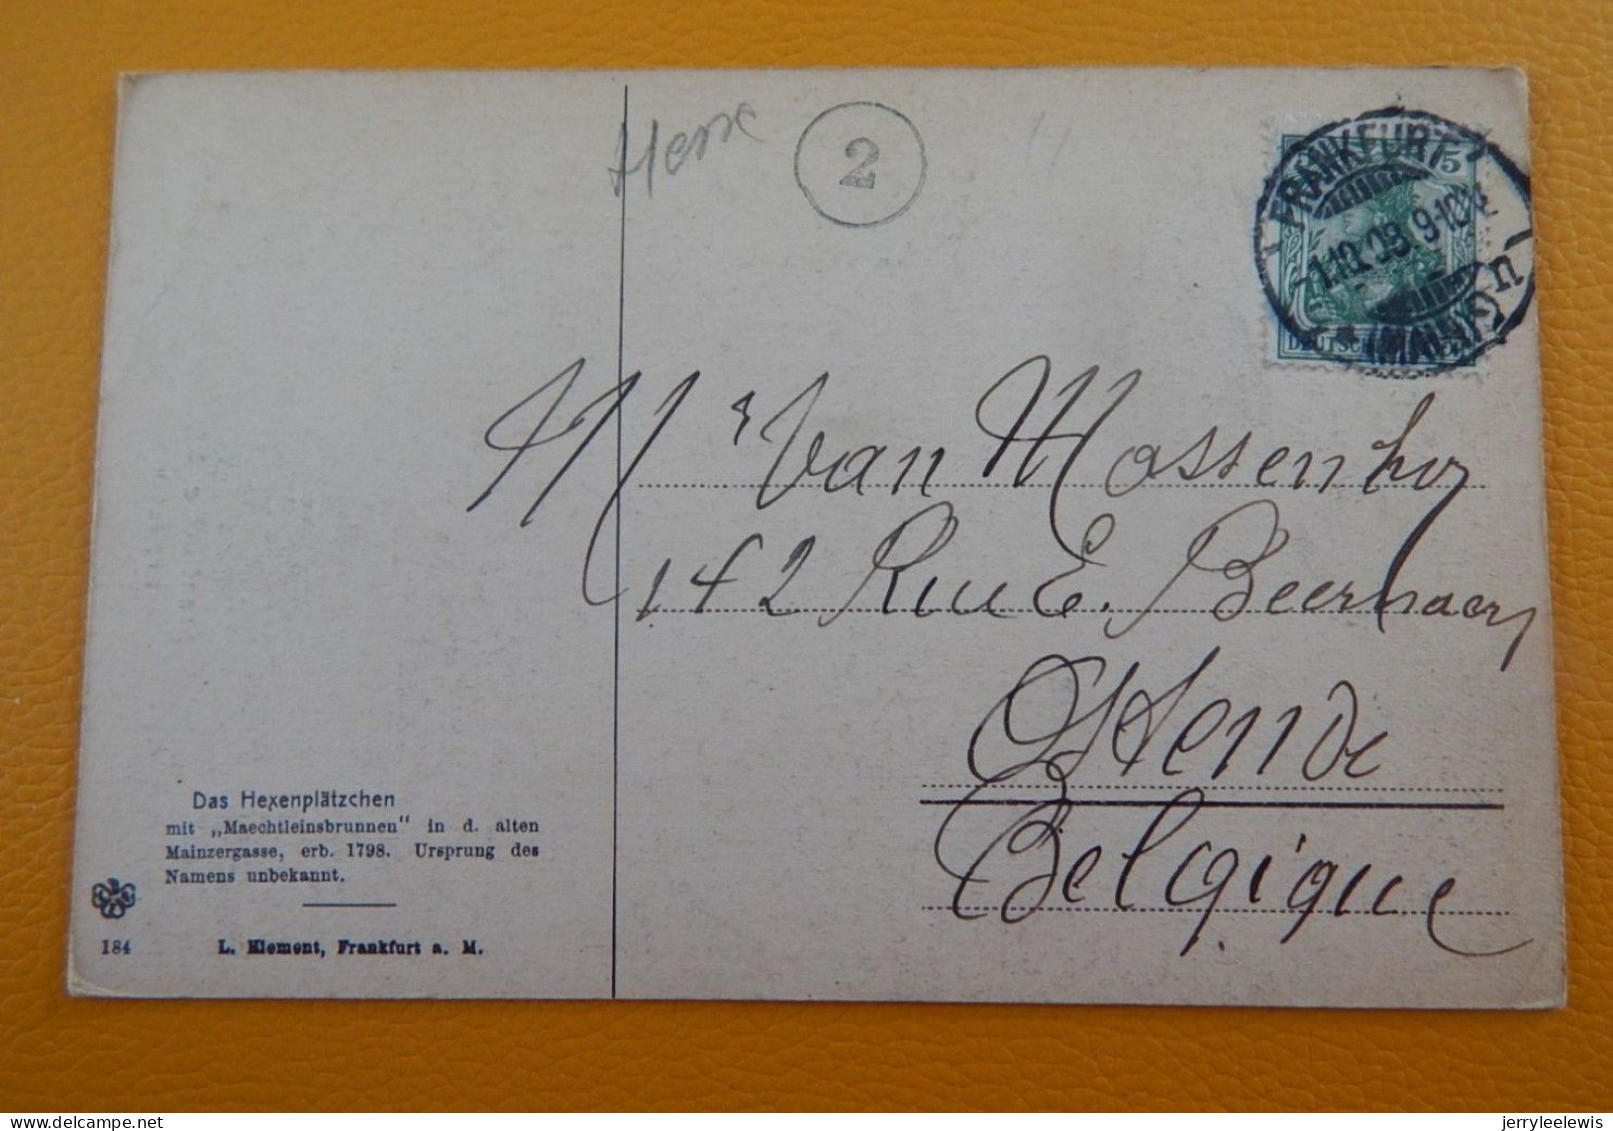 2
5
FRANKFURT
1.10.08. 9-10 V.
* (MAIN) 2 n
DEUTSCHES REICH
Mr Van Massenhoy
142 Rue E. Beernaert
Ostende
Belgique
Das Hexenplätzchen
mit „Maechtleinsbrunnen" in d. alten
Mainzergasse, erb. 1798. Ursprung des
Namens unbekannt.
184
L. Klement, Frankfurt a. M.
jerryleelewis